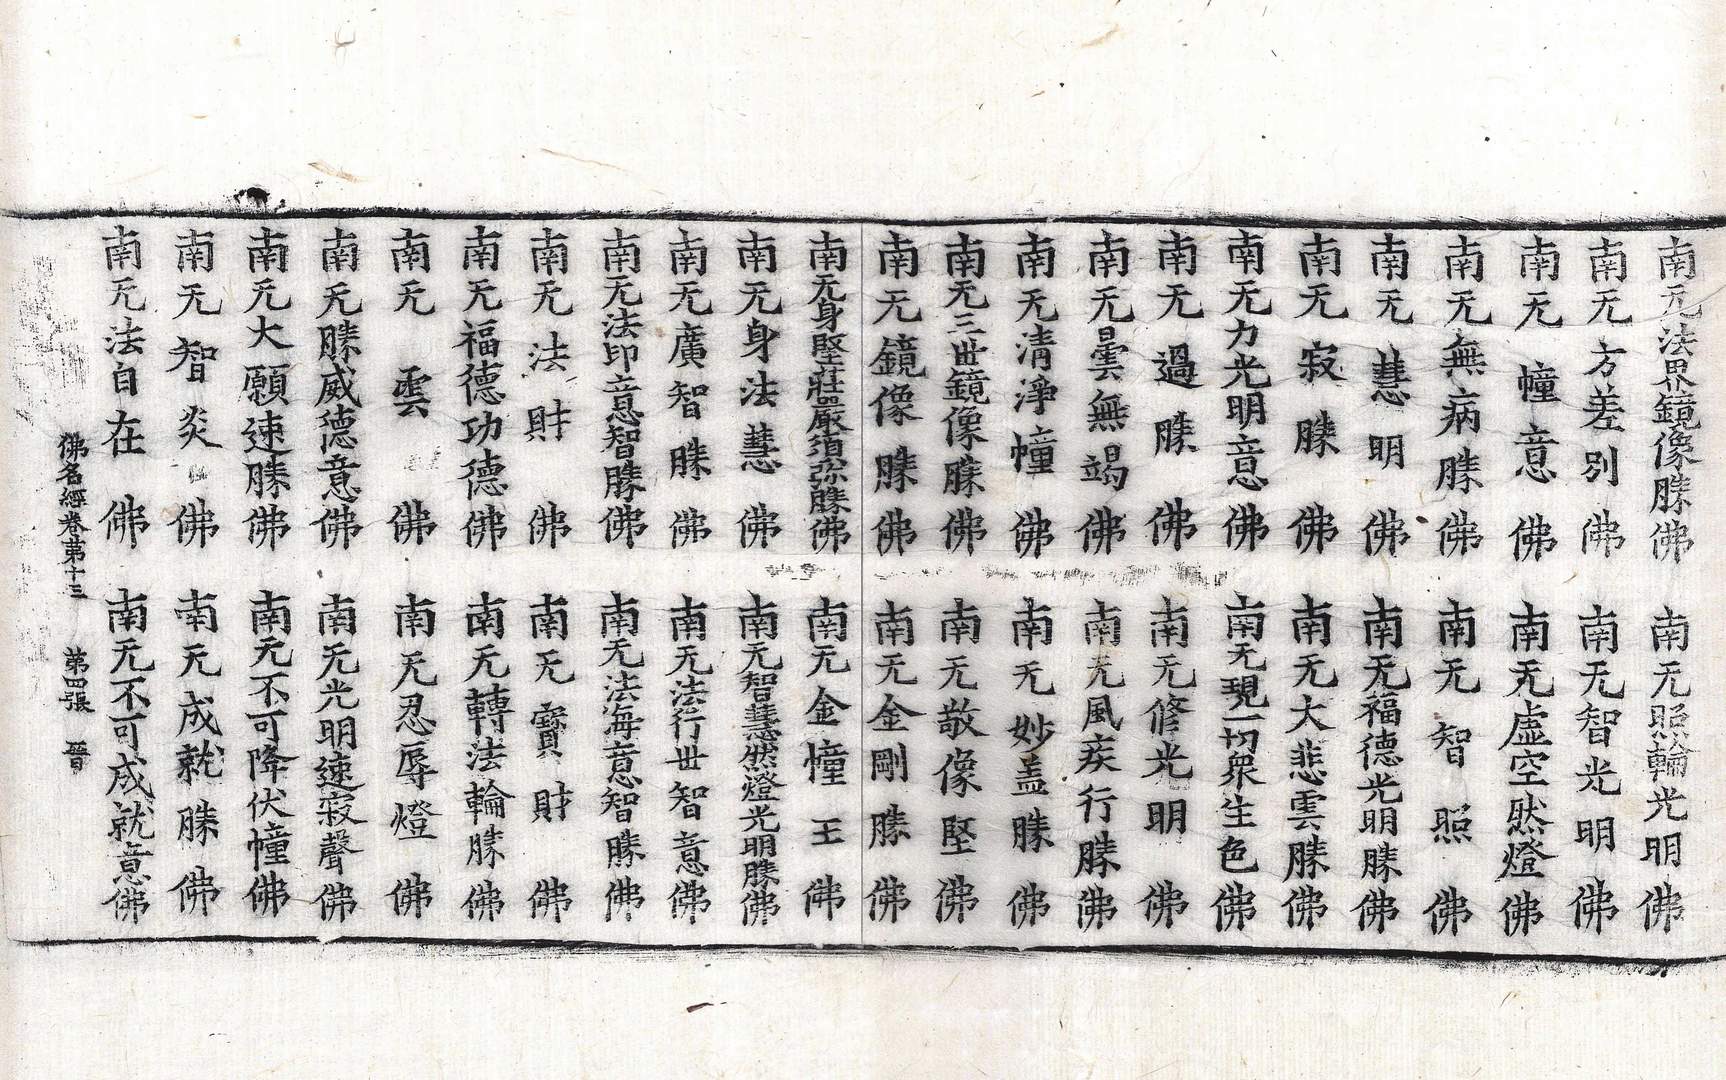 南无法界鏡像勝佛 南无照輪光明佛
南无方差別佛 南无智光明佛
南无幢意佛 南无虛空然燈佛
南无無病勝佛 南无智照佛
南无慧明佛 南无福德光明勝佛
南无寂勝佛 南无大悲雲勝佛
南无力光明意佛 南无現一切衆生色佛
南无過勝佛 南无修光明佛
南无曇無竭佛 南无風疾行勝佛
南无清淨幢佛 南无妙盖勝佛
南无三世鏡像勝佛 南无敬像堅佛
南无鏡像勝佛 南无金剛勝佛
南无身堅莊嚴須弥勝佛 南无金幢王佛
南无身法慧佛 南无智慧然燈光明勝佛
南无廣智勝佛 南无法行世智意佛
南无法印意智勝佛 南无法海意智勝佛
南无法財佛 南无寶財佛
南无福德功德佛 南无轉法輪勝佛
南无雲佛 南无忍辱燈佛
南无勝威德意佛 南无光明速寂聲佛
南无大願速勝佛 南无不可降伏幢佛
南无智炎佛 南无成就勝佛
南无法自在佛 南无不可成就意佛
佛名經卷第十三 第四張 晉